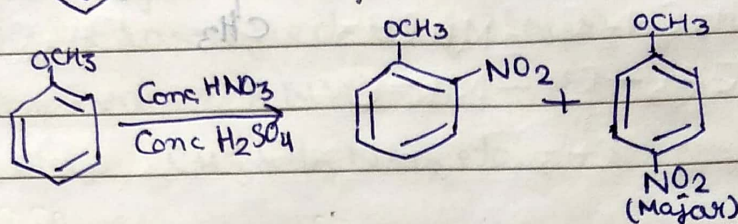 OCH3
Conc HNO3
Conc H2SO4
OCH3
NO2
+
OCH3
NO2
(Major)